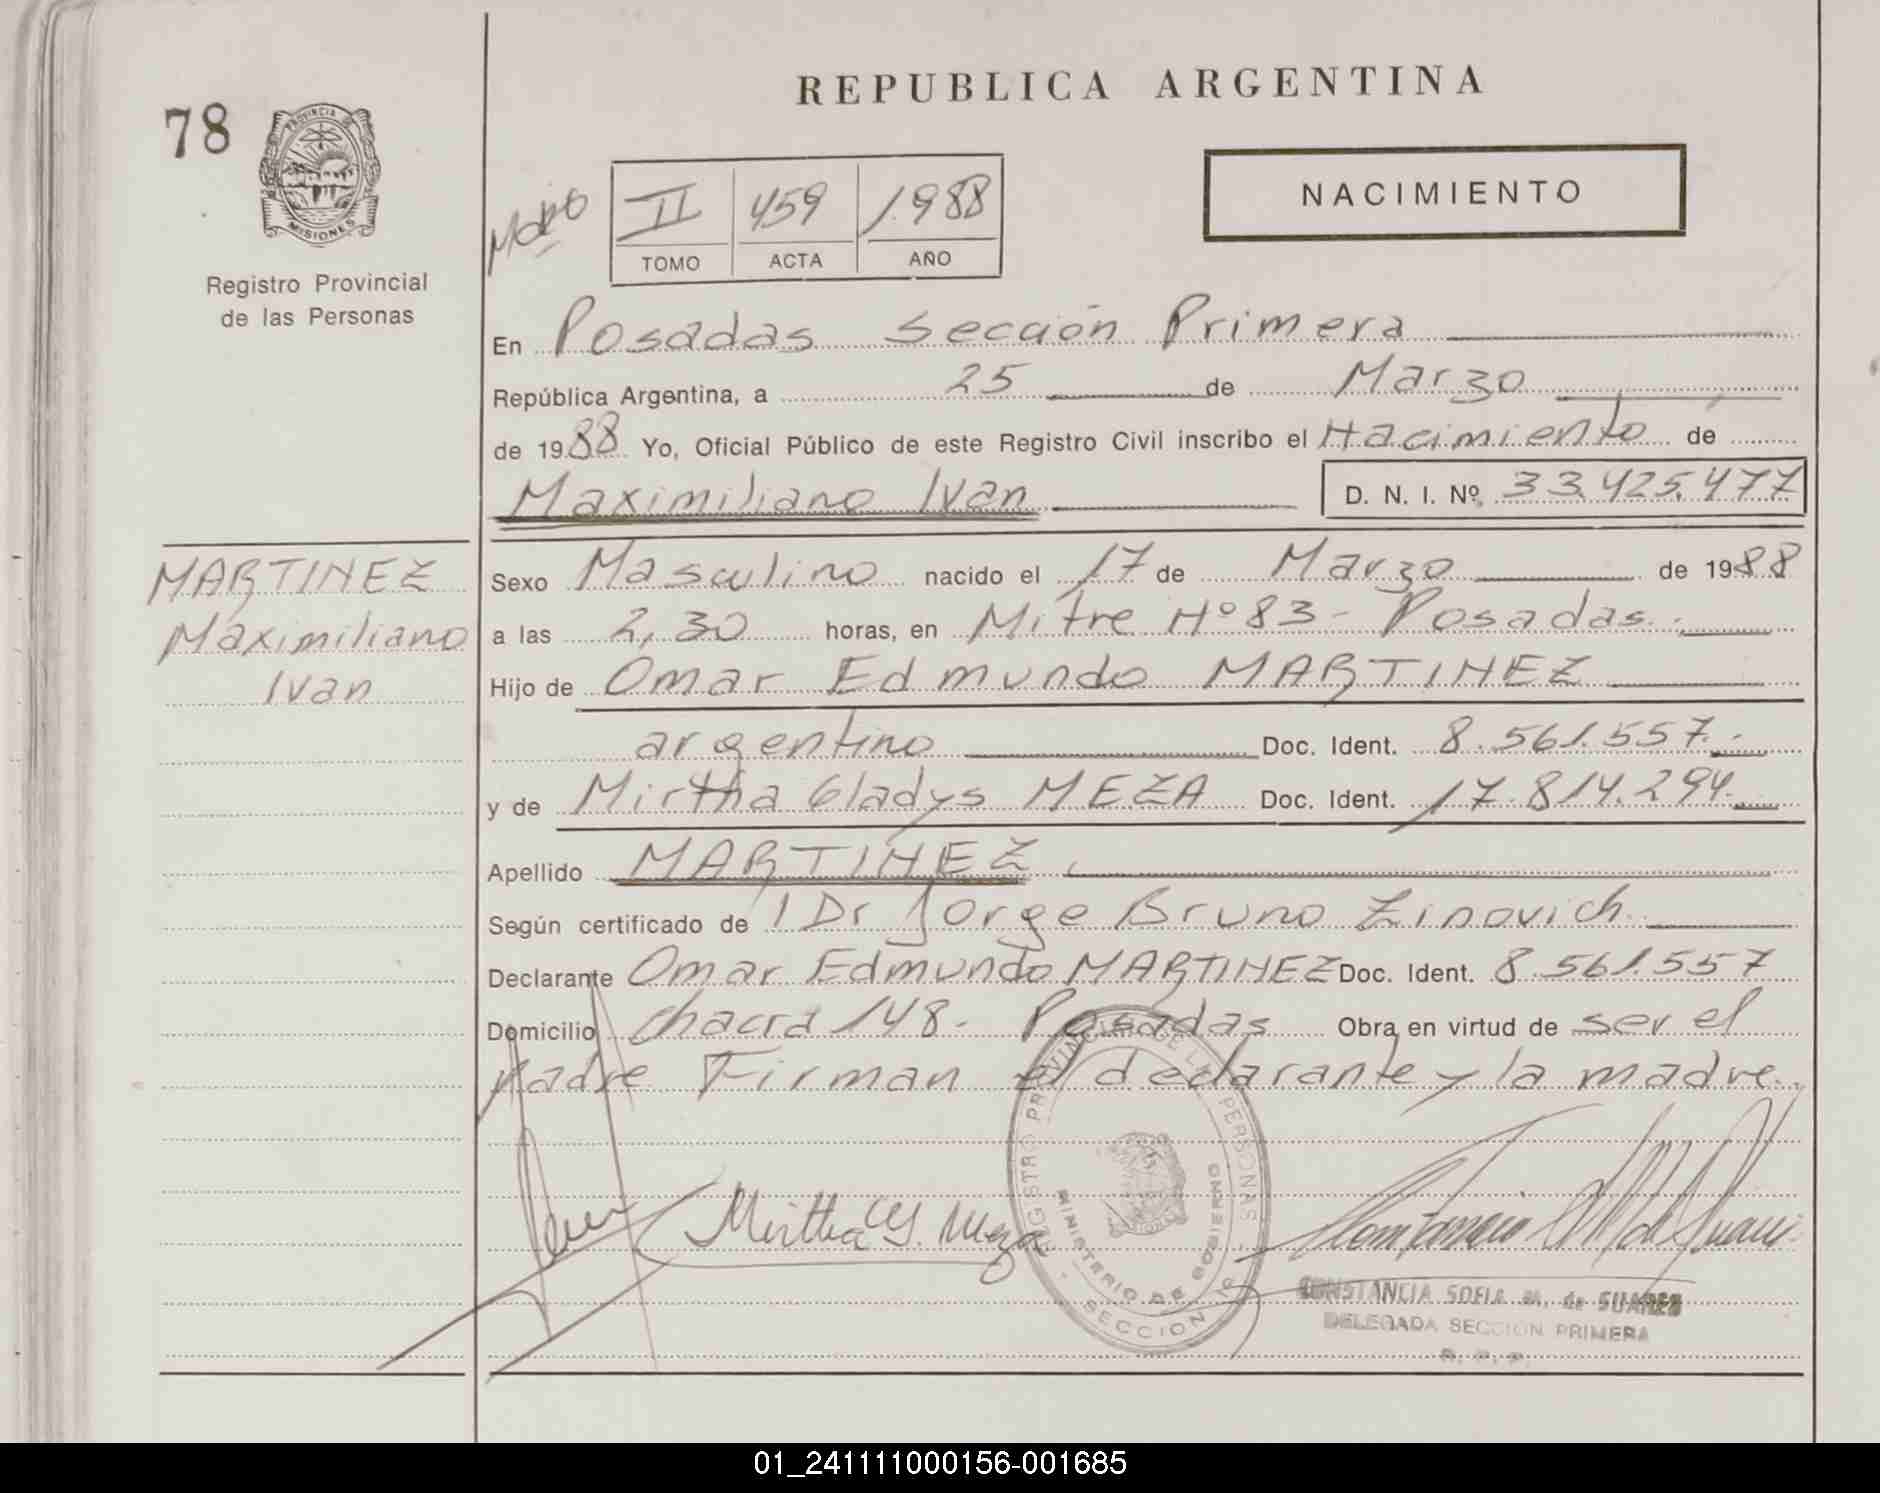 REPUBLICA ARGENTINA
78
PROVINCIA DE
MISIONES
Registro Provincial
de las Personas
NACIMIENTO
II 459 1988
TOMO ACTA AÑO
En Posadas Sección Primera
República Argentina, a 25 de Marzo
de 1988 Yo, Oficial Público de este Registro Civil inscribo el Nacimiento de
Maximiliano Ivan D. N. I. Nº 33.425.477
MARTINEZ
Maximiliano
Ivan
Sexo Masculino nacido el 17 de Marzo de 1988
a las 2,30 horas, en Mitre Nº 83 - Posadas.
Hijo de Omar Edmundo MARTINEZ
argentino Doc. Ident. 8.561.557.-
y de Mirtha Gladys MEZA Doc. Ident. 17.814.294.
Apellido MARTINEZ.
Según certificado de l Dr Jorge Bruno Zinovich
Declarante Omar Edmundo MARTINEZ Doc. Ident. 8.561.557
Domicilio chacra 148 - Posadas Obra en virtud de ser el
padre Firman el declarante y la madre.
REGISTRO PROVINCIAL DE LAS PERSONAS
MINISTERIO DE GOBIERNO
SECCION
Mirtha G. Meza
CONSTANCIA SOFIA M. de SUAREZ
DELEGADA SECCION PRIMERA
R. P. P.
01_241111000156-001685